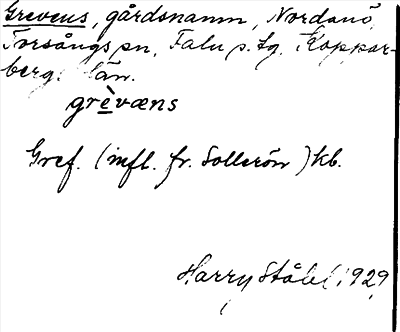 Grevens, gårdsnamn, Nordanö,
Torsångs sn, Falu s. lg. Koppar-
bergs län.
grèvæns
Gref. (infl. fr. Sollerön) kb.
Harry Ståhl 1929